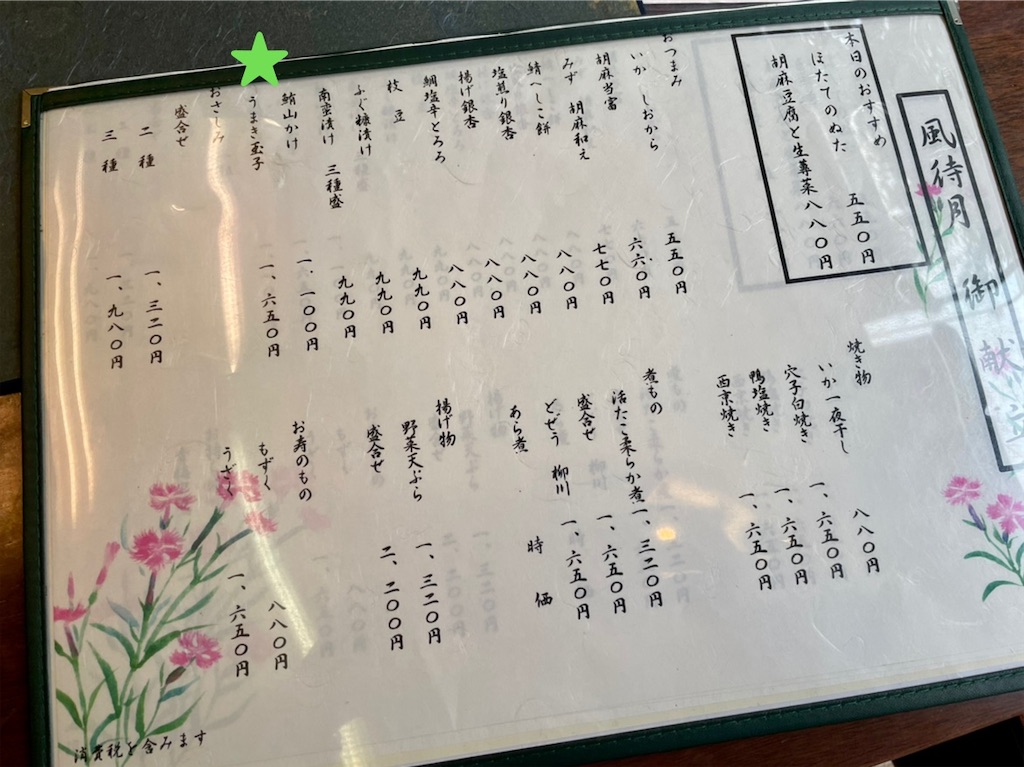 風待月 御献立
本日のおすすめ
ほたてのぬた 五五〇円
胡麻豆腐と生蓴菜 八八〇円
おつまみ
いか しおから 五五〇円
胡麻当富 六六〇円
みず 胡麻和え 七七〇円
鯖へしこ餅 八八〇円
塩煎り銀杏 八八〇円
揚げ銀杏 八八〇円
鯛塩辛とろろ 八八〇円
枝豆 九九〇円
ふぐ糠漬け 九九〇円
南蛮漬け 三種盛 九九〇円
鮪山かけ 一、一〇〇円
うまき玉子 一、六五〇円
おさしみ
盛合せ
二種 一、三二〇円
三種 一、九八〇円
焼き物
いか一夜干し 八八〇円
穴子白焼き 一、六五〇円
鴨塩焼き 一、六五〇円
西京焼き 一、六五〇円
煮もの
活たこ柔らか煮 一、三二〇円
盛合せ 一、六五〇円
どぜう 柳川 一、六五〇円
あら煮 時価
揚げ物
野菜天ぷら 一、三二〇円
盛合せ 二、二〇〇円
お寿のもの
もずく 八八〇円
うざく 一、六五〇円
消費税を含みます